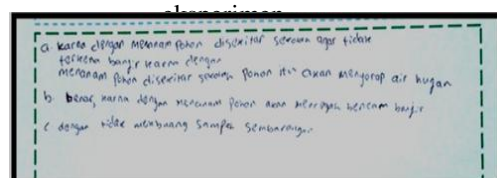 eksperimen
a. karna dengan menanam pohon disekitar sekolah agar tidak
terkena banjir karna dengan
menanam pohon disekitar sekolah pohon itu akan menyerap air hugan
b. benar, karna dengan menanam pohon akan mencegah bencam banjir
c. dengan tidak membuang sampah sembarangan